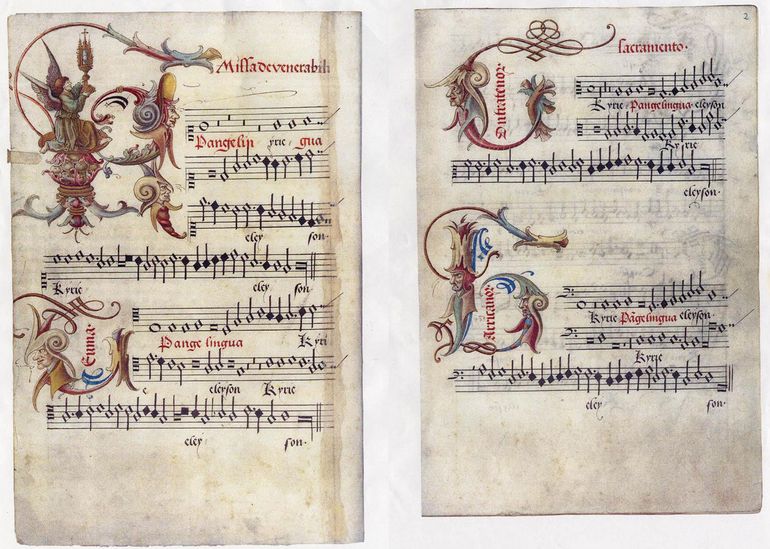 Missa de venerabili
Pangelin Kyrie gua
eley son.
Kyrie eley son.
Tenor
Pange lingua Kyri
e eleyson Kyrie
eley son.
2
sacramento.
Contratenor
Kyrie Pangelingua eleyson
Kyrie
eleyson.
Barricanor
Kyrie Pāgelingua eleyson.
Kyrie
eley son.